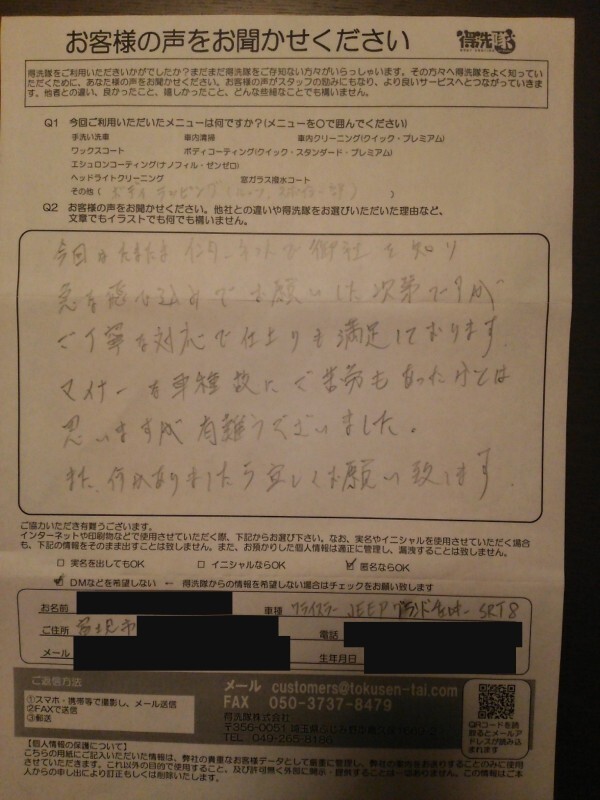 お客様の声をお聞かせください
得洗隊
得洗隊をご利用いただきいかがでしたか?まだまだ得洗隊をご存知ない方々がいらっしゃいます。その方々へ得洗隊をよく知って
いただくために、あなた様の声をお聞かせください。お客様の声がスタッフの励みにもなり、より良いサービスへとつながっていきま
す。他者との違い、良かったこと、嬉しかったこと、どんな些細なことでも構いません。
Q1 今回ご利用いただいたメニューは何ですか?(メニューを○で囲んでください)
手洗い洗車 車内清掃 車内クリーニング(クイック・プレミアム)
ワックスコート ボディコーティング(クイック・スタンダード・プレミアム)
エシュロンコーティング(ナノフィル・ゼンゼロ)
ヘッドライトクリーニング 窓ガラス撥水コート
その他( )
Q2 お客様の声をお聞かせください。他社との違いや得洗隊をお選びいただいた理由など、
文章でもイラストでも何でも構いません。
今回はたまたまインターネットで御社を知り
急な飛び込みでお願いした次第ですが
ご丁寧な対応で仕上りも満足しております。
マイナーな車種故にご苦労もあったけとは
思いますが有難うございました。
また、何かありましたら宜しくお願い致します。
ご協力いただき有難うございます。
インターネットや印刷物などで使用させていただく際、下記からお選び下さい。なお、実名やイニシャルを使用させていただく場合
も、下記の情報をそのまま出すことは致しません。また、お預かりした個人情報は適正に管理し、漏洩することは致しません。
□ 実名を出してもOK □ イニシャルならOK ☑ 匿名ならOK
☑ DMなどを希望しない ← 得洗隊からの情報を希望しない場合はチェックをお願い致します
お名前 車種 クライスラー JEEP グランドチェロキー SRT8
ご住所 富士見市 電話
メール 生年月日
ご返信方法
①スマホ・携帯等で撮影し、メール送信
②FAXで送信
③郵送
メール customers@tokusen-tai.com
FAX 050-3737-8479
得洗隊株式会社
〒356-0051
TEL 049-265-8190
QRコードを読
取るとメールア
ドレスが読み込
まれます
【個人情報の保護について】
こちらの用紙にご記入いただいた情報は、弊社の貴重なお客様データとして厳重に管理し、弊社の案内をお送りすることのみに使用
させていただきます。これ以外の目的で使用すること、及び許可無く外部に開示・提供することは一切ありません。この情報はご本
人からの申し出により訂正もしくは削除いたします。